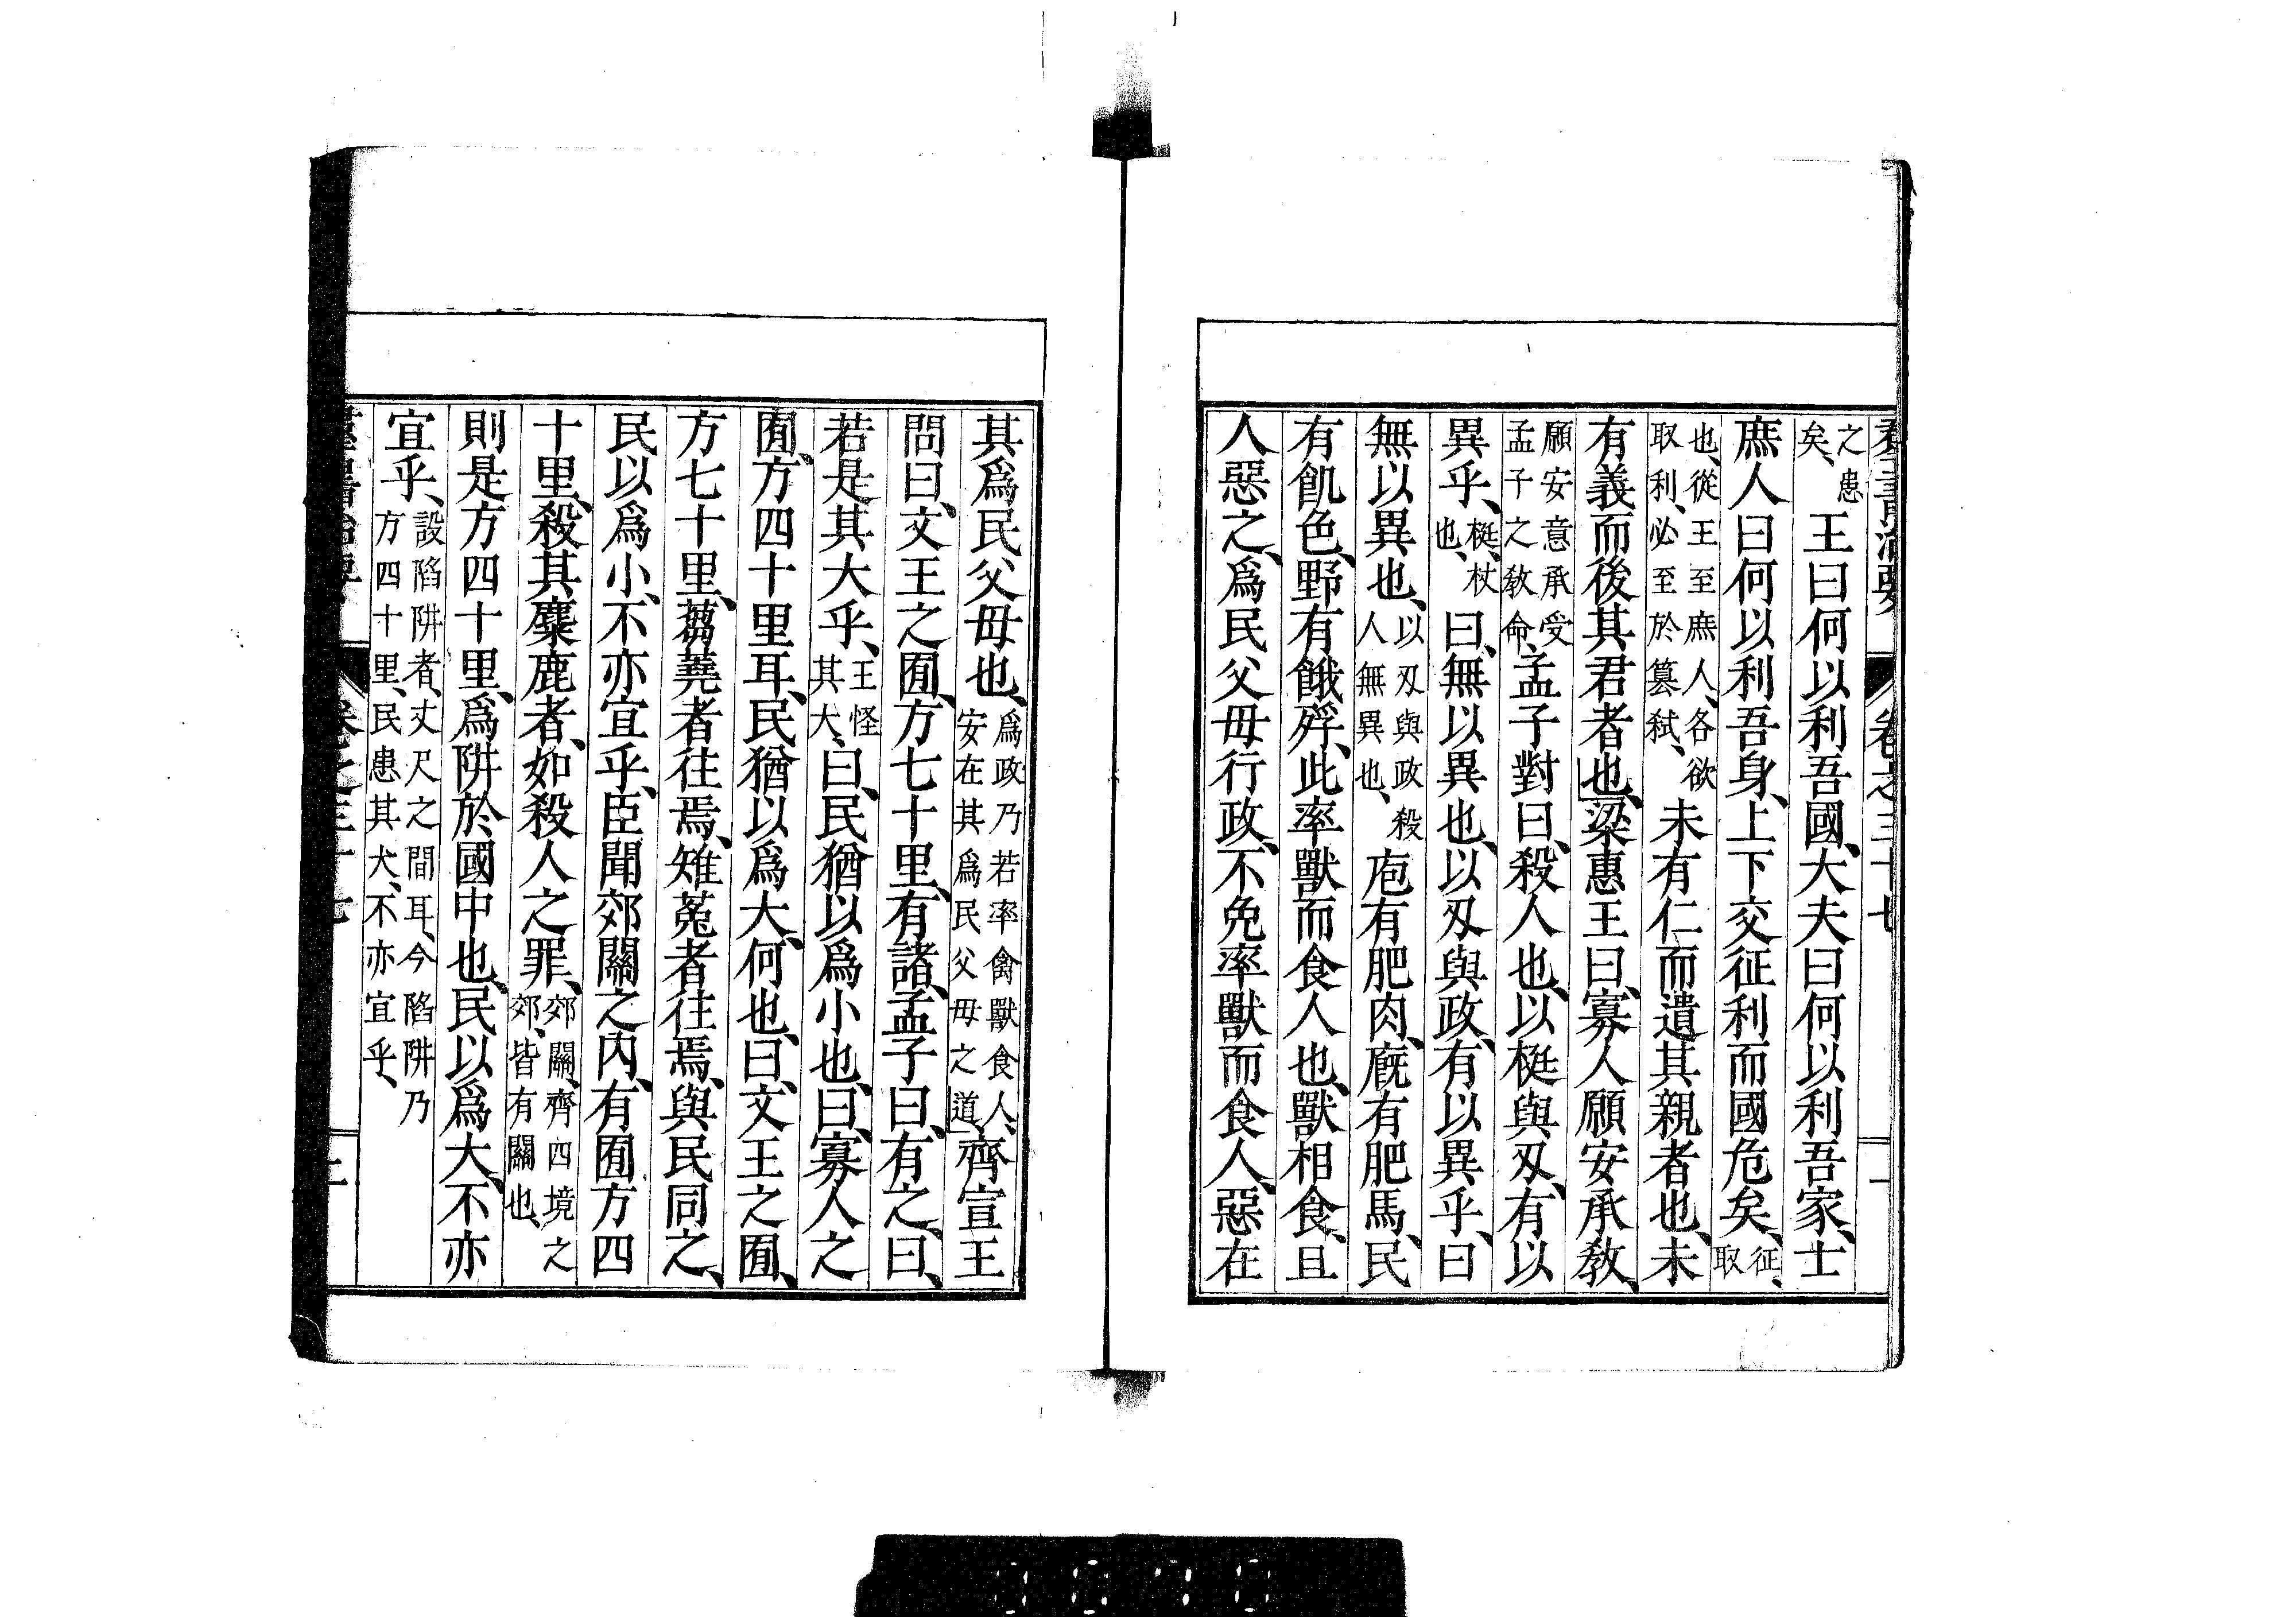 群書治要 卷之三十七 二
之患矣、王曰何以利吾國、大夫曰何以利吾家、士
庶人曰何以利吾身、上下交征利而國危矣、征、取
也、從王至庶人、各欲取利、必至於篡弒、未有仁而遺其親者也、未
有義而後其君者也、梁惠王曰、寡人願安承教、
願安意承受孟子之教命、孟子對曰、殺人也、以梃與刃、有以
異乎、梃、杖也、曰、無以異也、以刃與政、有以異乎、曰
無以異也、以刃與政殺人無異也、庖有肥肉、廐有肥馬、民
有飢色、野有餓殍、此率獸而食人也、獸相食、且
人惡之、爲民父母行政、不免率獸而食人、惡在
其爲民父母也、爲政乃若率禽獸食人、安在其爲民父母之道、齊宣王
問曰、文王之囿、方七十里、有諸、孟子曰、有之、曰、
若是其大乎、王怪其大、曰、民猶以爲小也、曰、寡人之
囿、方四十里耳、民猶以爲大、何也、曰、文王之囿、
方七十里、蒭蕘者往焉、雉菟者往焉、與民同之、
民以爲小、不亦宜乎、臣聞郊關之內、有囿方四
十里、殺其麋鹿者、如殺人之罪、郊關、齊四境之郊、皆有關也、
則是方四十里、爲阱於國中也、民以爲大、不亦
宜乎、設陷阱者、丈尺之間耳、今陷阱乃方四十里、民患其大、不亦宜乎、
群書治要 卷之三十七